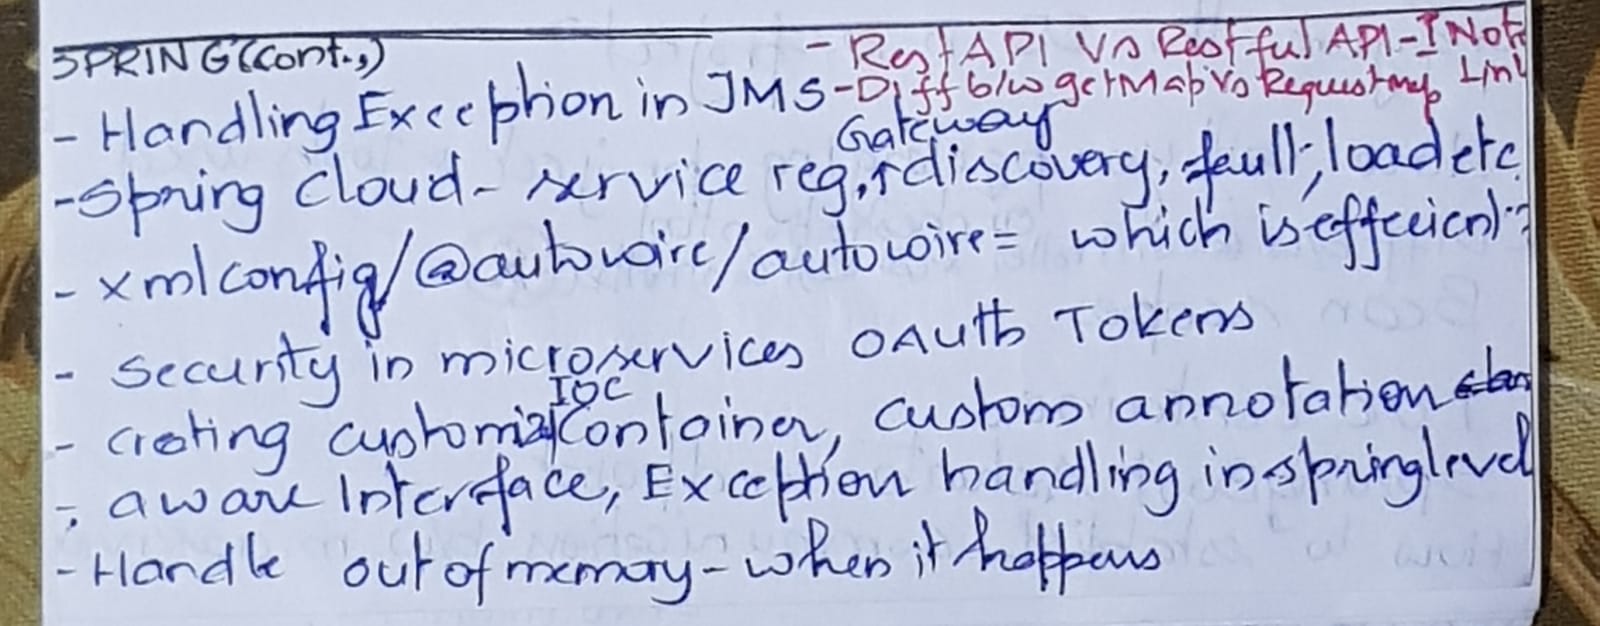 SPRING (Cont.,)
- RestAPI Vs Restful API - I Not
- Handling Exception in JMS
- Diff b/w getMap Vs Requestmap Link
Gateway
- Spring Cloud - service reg, + discovery, fault, load etc
- xmlconfig/@autowire/autowire = which is effeicent?
- Security in microservices OAuth Tokens
IOC
- creting customiz Container, custom annotation
- aware Interface, Exception handling in spring level
- Handle out of memory - when it happens